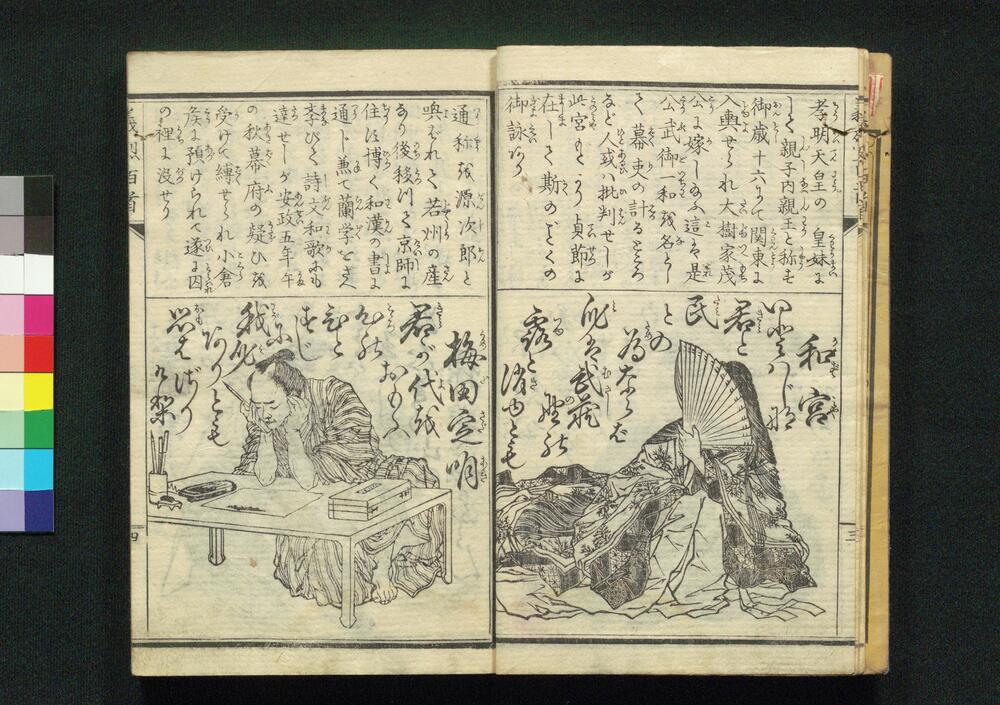 孝明天皇の皇妹に
して親子内親王と称も
御歳十六にて関東に
入輿せられ大樹家茂
公に嫁し給ふ這は是
公武御一和を名とし
て幕吏の計るところ
など人或は批判せしが
此宮もとより貞節に
在して斯のごとくの
御詠あり
和宮
惜しまじな
君と
民
との
為ならば
身は武蔵野の
露と消ゆとも
三
通称を源次郎と
喚ばれて若州の産
あり後移りて京師に
住み博く和漢の書に
通し兼て蘭学をさへ
学びて詩文和歌にも
達せしが安政五年午
の秋幕府の疑ひを
受けて縛せられ小倉
侯に預けられて遂に囚
の裡に没せり
梅田定明
君が代を
おもふ
心の
一と
すじに
我身
ありとも
思は
ざり
けり
義烈百首
四